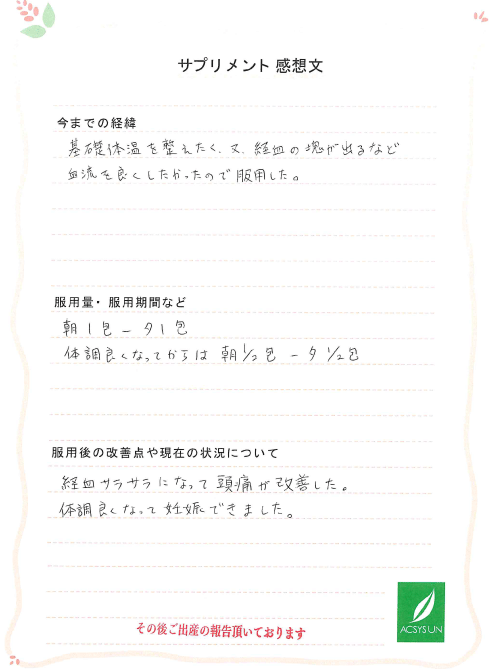 サプリメント 感想文
今までの経緯
基礎体温を整えたく、又、経血の塊が出るなど
血流を良くしたかったので服用した。
服用量・服用期間など
朝1包 - 夕1包
体調良くなってからは 朝1/2包 - 夕1/2包
服用後の改善点や現在の状況について
経血サラサラになって頭痛が改善した。
体調良くなって妊娠できました。
その後ご出産の報告頂いております
ACSYSUN